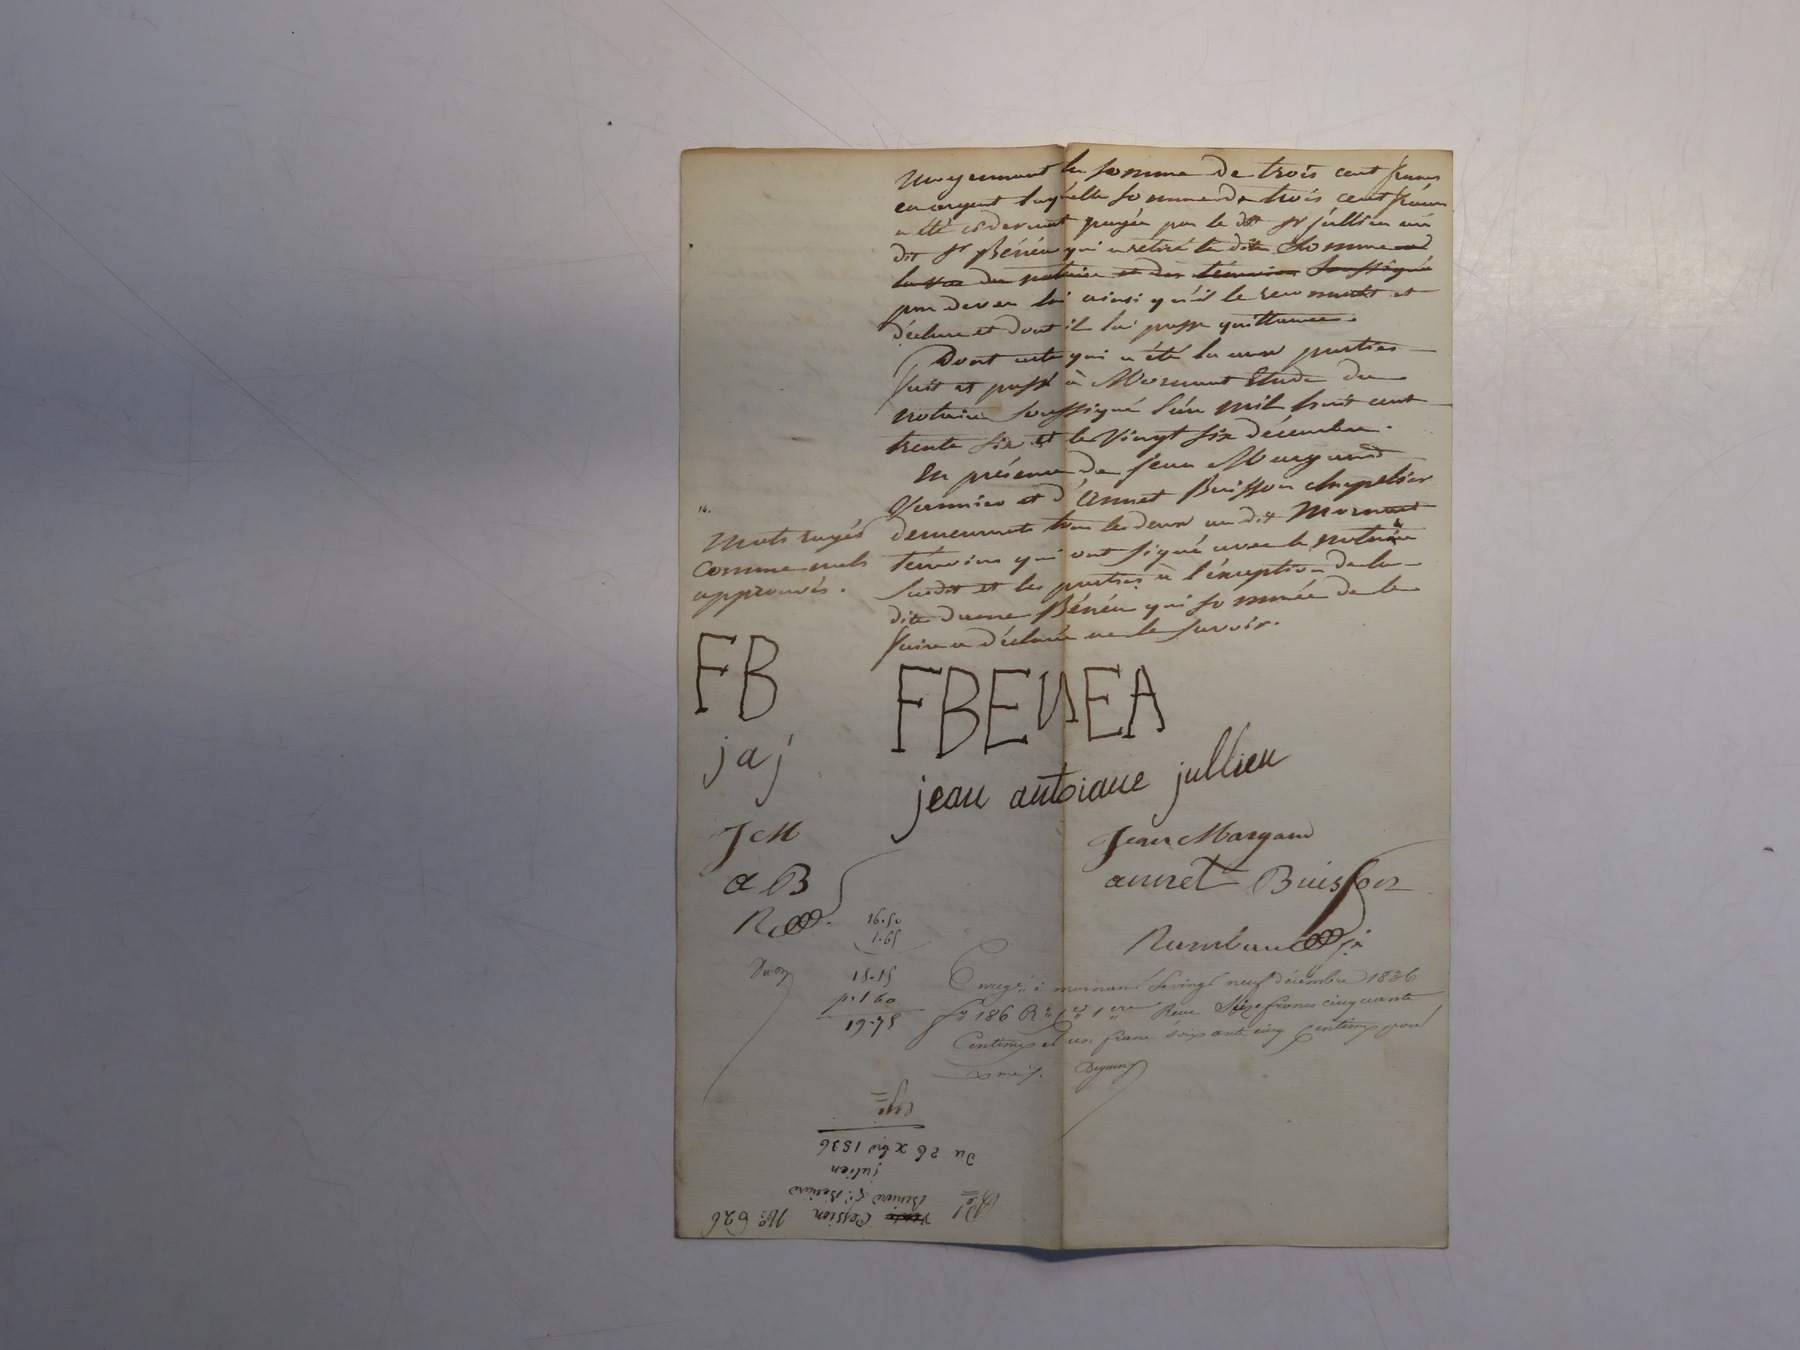 Moyennant la somme de trois cent francs
en argent laquelle somme de trois cent francs
a été cidevant payée par le dit sr jullien au
dit sr Bénéa qui a retiré la dite somme
la vue du notaire et des témoins soussigné
par devers lui ainsi qu'il le reconnait et
déclare et dont il lui passe quittance.
Dont acte qui a été lu aux parties
fait et passé à Mornant Etude du
notaire soussigné l'an mil huit cent
trente six et le vingt six décembre.
En présence de Jean Margand
et d'Annet Buisson chapelier
demeurants tous les deux au dit Mornant
témoins qui ont signé avec le notaire
susdit et les parties à l'éxception de la
dite dame Bénéa qui sommée de le
faire a déclaré ne le savoir.
14.
Mots rayés
comme nuls
approuvés.
FB
FBENEA
jaj
jean antoiane jullien
JM
Jean Margand
aB
annet Buisson
R
Enregé à mornant le vingt neuf décembre 1836
fo 186 Ro Co 1 ere Reçu Seize francs cinquante
Centimes et un franc soixante cinq Centimes pour
Deguin
Du 26 xbre 1836
julien
Cession No 626